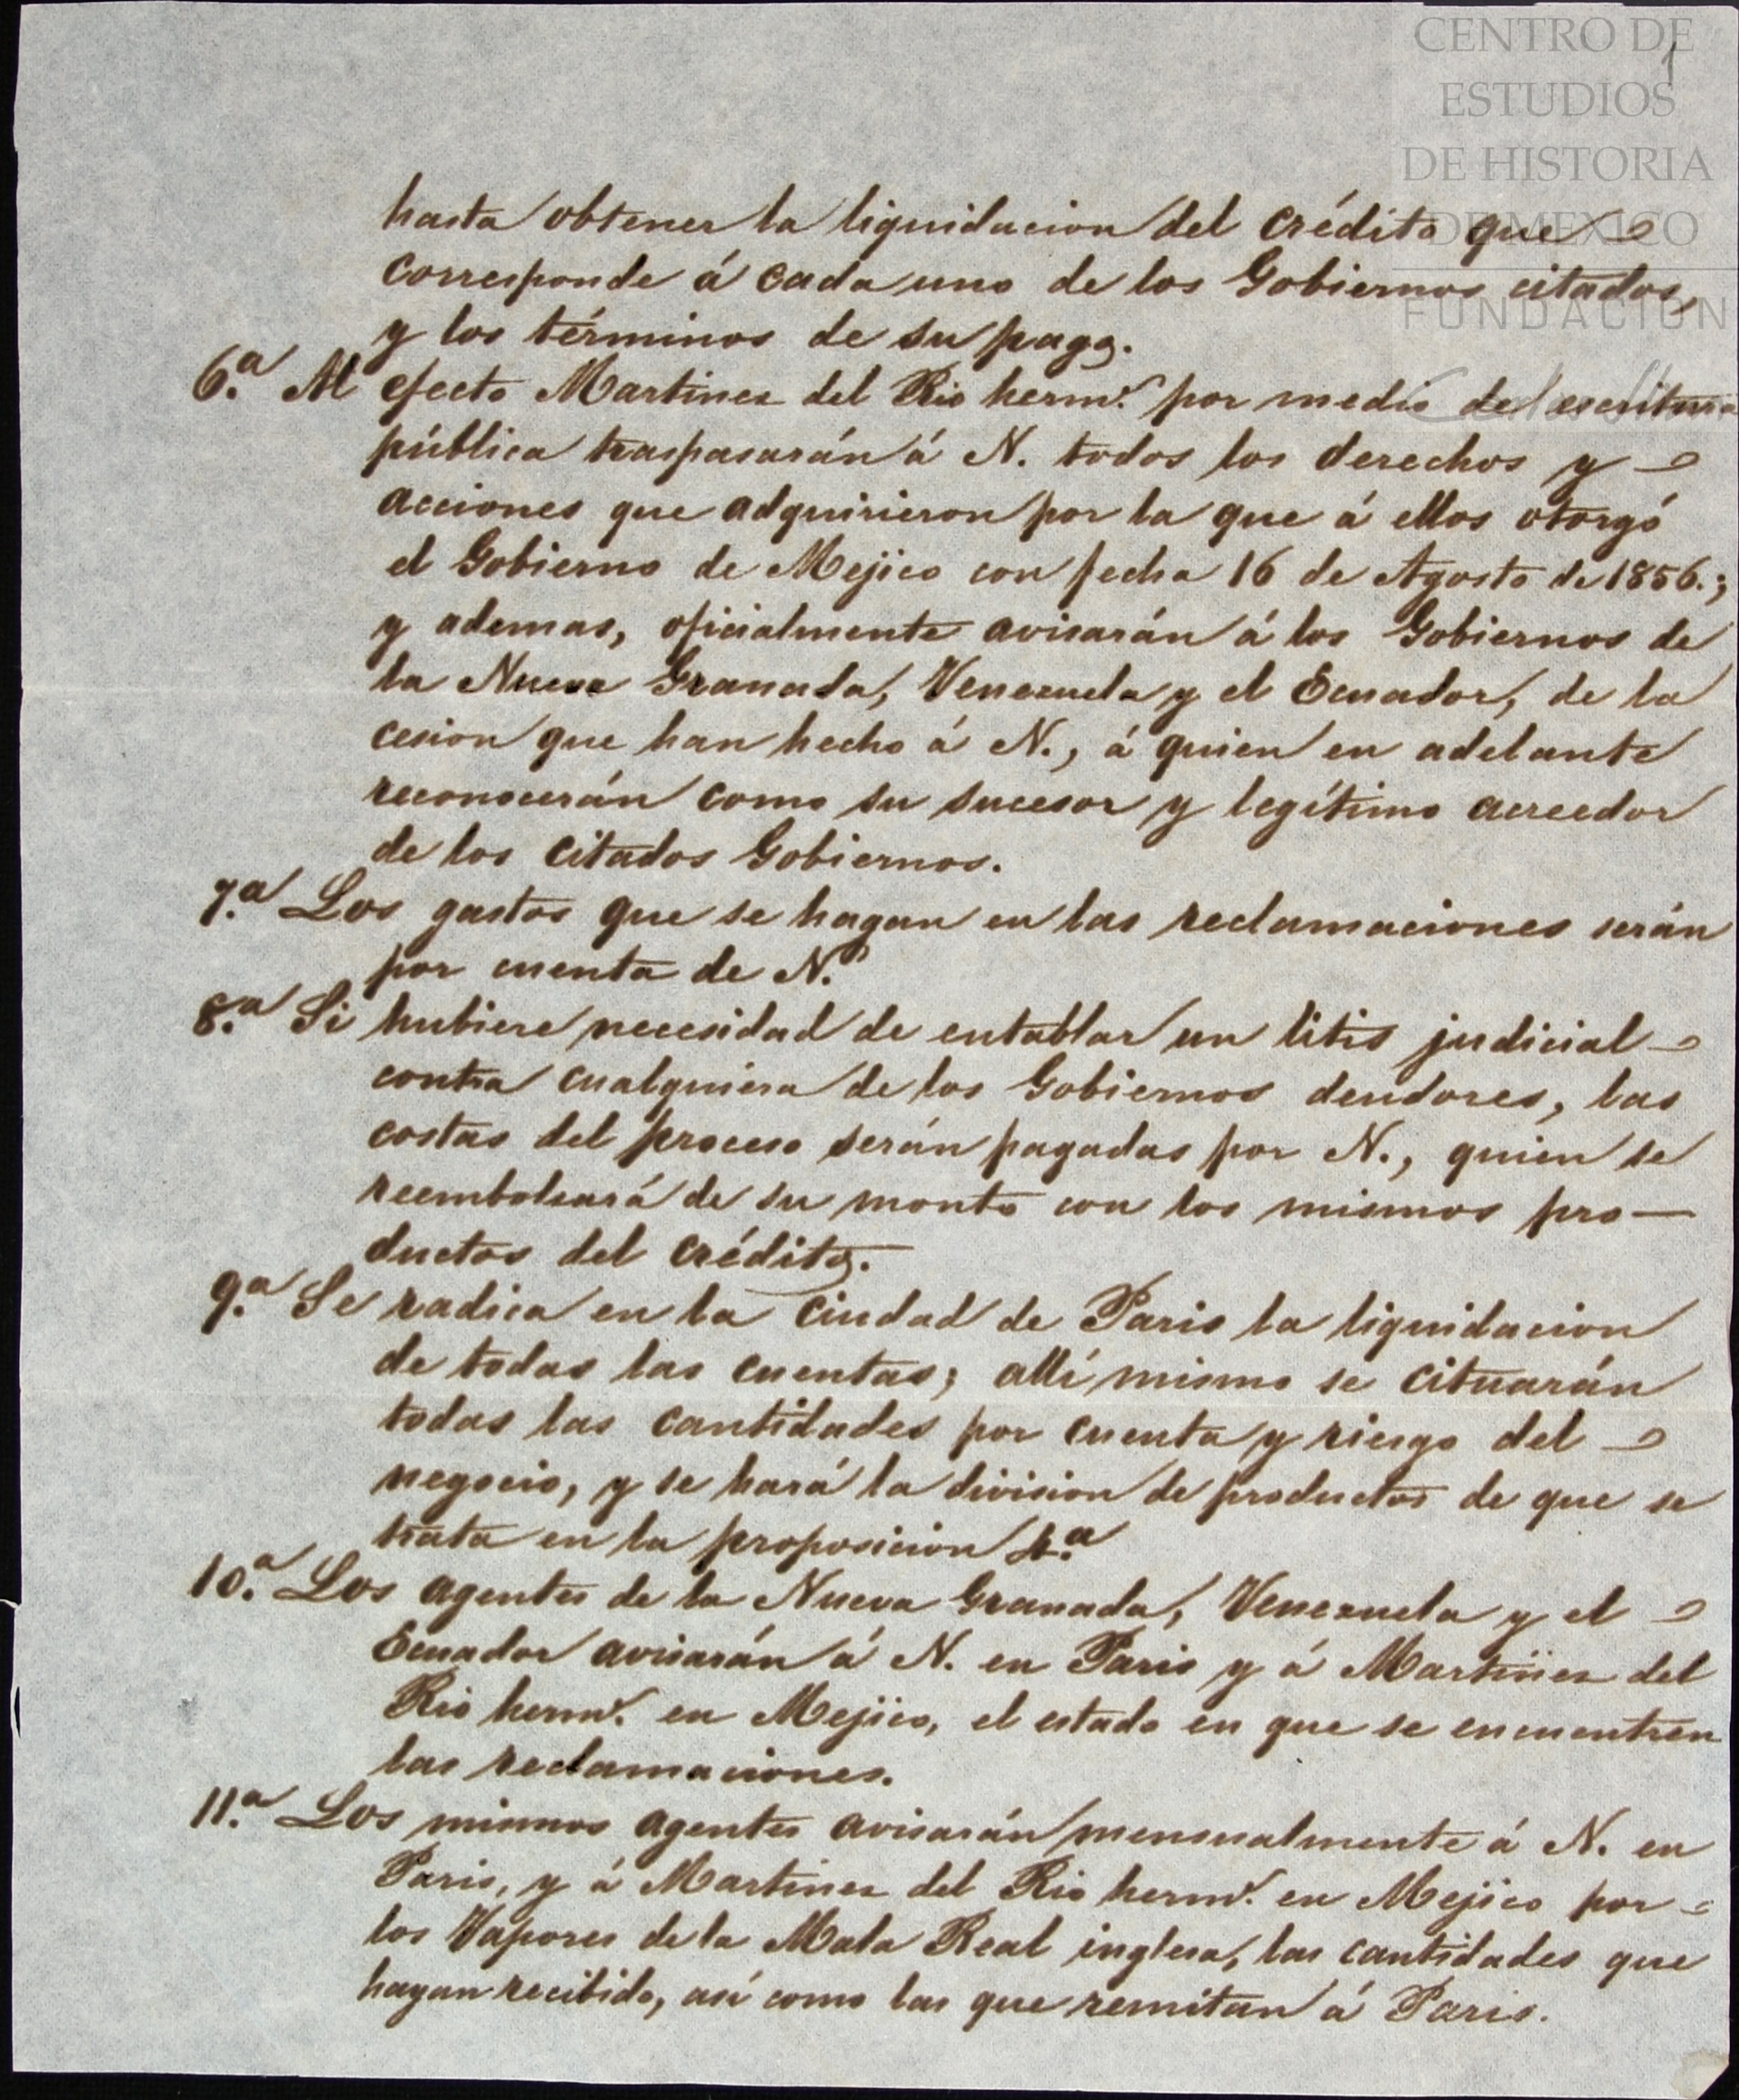 CENTRO DE
ESTUDIOS
DE HISTORIA
DE MEXICO
FUNDACION
1
hasta obtener la liquidacion del crédito que
corresponde á cada uno de los Gobiernos citados,
y los términos de su pago.
6.ª Al efecto Martinez del Rio herm.s por medio de escritura
pública traspasarán á N. todos los derechos y
acciones que adquirieron por la que á ellos otorgó
el Gobierno de Mejico con fecha 16 de Agosto de 1856.;
y ademas, oficialmente avisarán á los Gobiernos de
la Nueva Granada, Venezuela y el Ecuador, de la
cesion que han hecho á N., á quien en adelante
reconocerán como su sucesor y legítimo acreedor
de los citados Gobiernos.
7.ª Los gastos que se hagan en las reclamaciones serán
por cuenta de N.
8.ª Si hubiere necesidad de entablar un litis judicial
contra cualquiera de los Gobiernos deudores, las
costas del proceso serán pagadas por N., quien se
reembolsará de su monto con los mismos pro—
ductos del crédito.
9.ª Se radica en la ciudad de Paris la liquidacion
de todas las cuentas; allí mismo se cituarán
todas las cantidades por cuenta y riesgo del
negocio, y se hará la division de productos de que se
trata en la proposicion 4.ª
10.ª Los agentes de la Nueva Granada, Venezuela y el
Ecuador avisarán á N. en Paris y á Martinez del
Rio herm.s en Mejico, el estado en que se encuentren
las reclamaciones.
11.ª Los mismos agentes avisarán mensualmente á N. en
Paris, y á Martinez del Rio herm.s en Mejico por
los Vapores de la Mala Real inglesa, las cantidades que
hayan recibido, así como las que remitan á Paris.